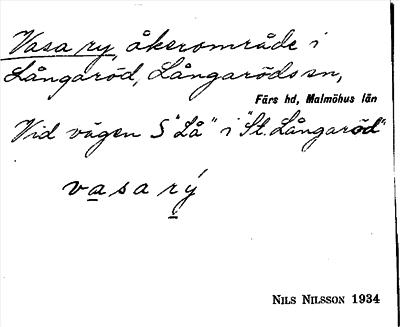 Vasa ry, åkerområde i
Långaröd, Långaröds sn,
Färs hd, Malmöhus län
Vid vägen S "Lå" i "St. Långaröd".
vasa rý
NILS NILSSON 1934